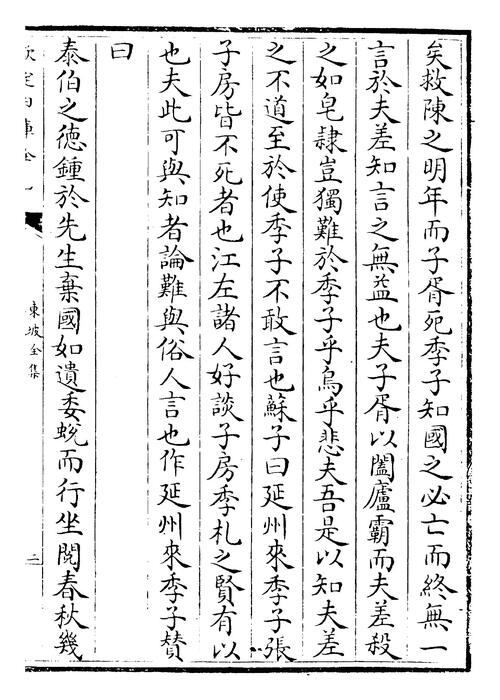 矣救陳之明年而子胥死季子知國之必亡而終無一
言於夫差知言之無益也夫子胥以闔廬霸而夫差殺
之如皂隸豈獨難於季子乎烏乎悲夫吾是以知夫差
之不道至於使季子不敢言也蘇子曰延州來季子張
子房皆不死者也江左諸人好談子房季札之賢有以
也夫此可與知者論難與俗人言也作延州來季子賛
曰
泰伯之德鍾於先生棄國如遺委蛻而行坐閱春秋幾
東坡全集
二